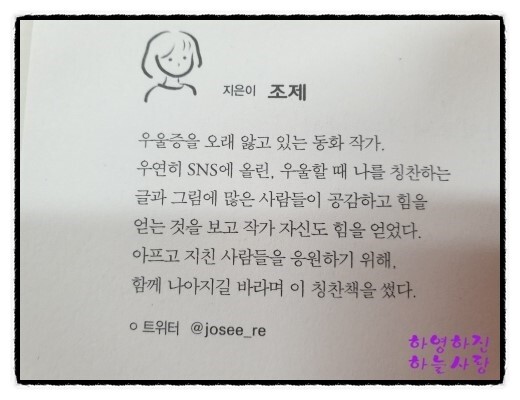 지은이 조제
우울증을 오래 앓고 있는 동화 작가.
우연히 SNS에 올린, 우울할 때 나를 칭찬하는
글과 그림에 많은 사람들이 공감하고 힘을
얻는 것을 보고 작가 자신도 힘을 얻었다.
아프고 지친 사람들을 응원하기 위해,
함께 나아지길 바라며 이 칭찬책을 썼다.
○ 트위터 @josee_re
하영하진
하늘사랑